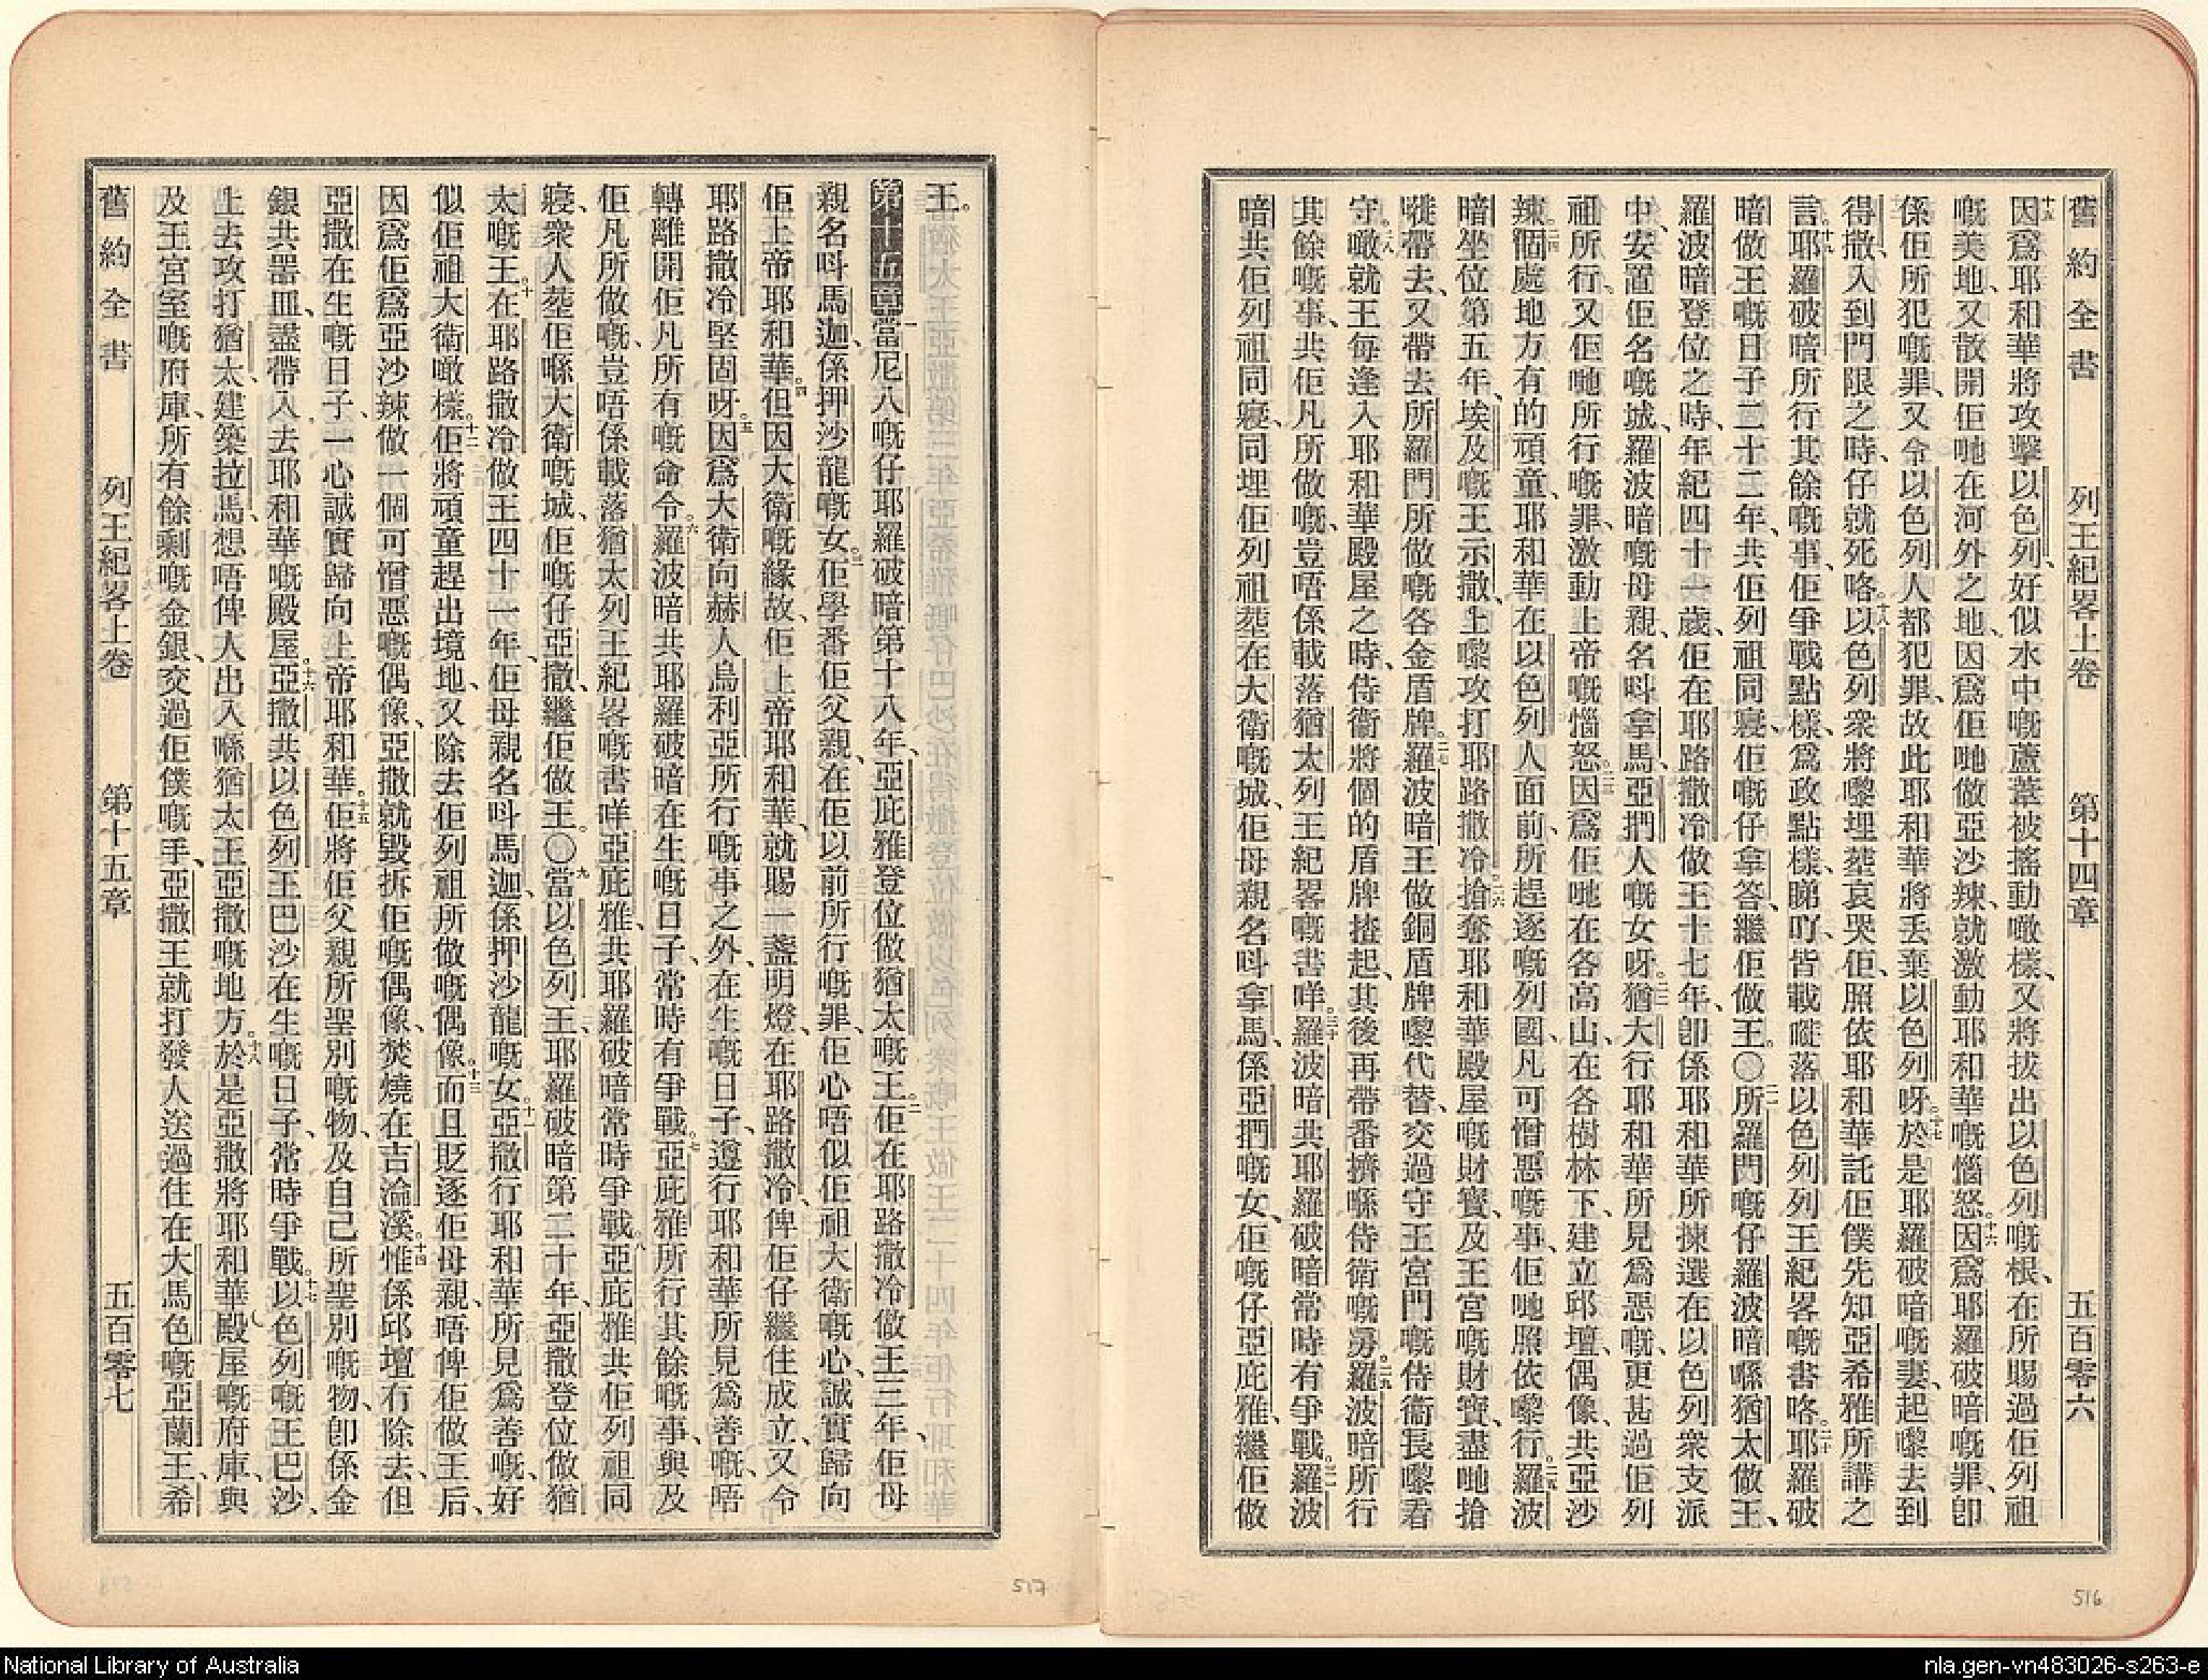 舊約全書　列王紀畧上卷　第十四章　五百零六
十五因爲耶和華將攻擊以色列、好似水中嘅蘆葦被搖動噉樣、又將拔出以色列嘅根、在所賜過佢列祖
嘅美地、又散開佢哋在河外之地、因爲佢哋做亞沙辣、就激動耶和華嘅惱怒。十六因爲耶羅破暗嘅罪、卽
係佢所犯嘅罪、又令以色列人都犯罪、故此耶和華將丢棄以色列呀。十七於是耶羅破暗嘅妻、起嚟去到
得撒、入到門限之時、仔就死咯。十八以色列衆將嚟埋塟哀哭佢、照依耶和華託佢僕先知亞希雅所講之
言。十九耶羅破暗所行其餘嘅事、佢爭戰點樣、爲政點樣、睇吖、皆載嘥落以色列列王紀畧嘅書咯。二十耶羅破
暗做王嘅日子二十二年、共佢列祖同寢、佢嘅仔拿答、繼佢做王。〇二一所羅門嘅仔羅波暗喺猶太做王、
羅波暗登位之時、年紀四十一歲、佢在耶路撒冷做王十七年、卽係耶和華所揀選在以色列衆支派
中、安置佢名嘅城、羅波暗嘅母親、名呌拿馬、亞捫人嘅女呀。二二猶大行耶和華所見爲惡嘅、更甚過佢列
祖所行、又佢哋所行嘅罪、激動上帝嘅惱怒。二三因爲佢哋在各高山、在各樹林下、建立邱壇偶像、共亞沙
辣。二四個處地方有的頑童、耶和華在以色列人面前、所趕逐嘅列國、凡可憎惡嘅事、佢哋照依嚟行。二五羅波
暗坐位第五年、埃及嘅王示撒、上嚟攻打耶路撒冷。二六搶奪耶和華殿屋嘅財寶、及王宮嘅財寶、盡哋搶
嘥帶去、又帶去所羅門所做嘅各金盾牌。二七羅波暗王做銅盾牌嚟代替、交過守王宮門嘅侍衞長嚟看
守。二八噉就王每逢入耶和華殿屋之時、侍衞將個的盾牌揸起、其後再帶番擠喺侍衛嘅房。二九羅波暗所行
其餘嘅事、共佢凡所做嘅、豈唔係載落猶太列王紀畧嘅書咩。三十羅波暗共耶羅破暗常時有爭戰。三一羅波
暗共佢列祖同寢、同埋佢列祖塟在大衛嘅城、佢母親名呌拿馬、係亞捫嘅女、佢嘅仔亞庇雅、繼佢做
王。
第十五章一當尼八嘅仔耶羅破暗第十八年、亞庇雅登位做猶太嘅王。二佢在耶路撒冷做王三年、佢母
親名呌馬迦、係押沙龍嘅女。三佢學番佢父親、在佢以前所行嘅罪、佢心唔似佢祖大衛嘅心、誠實歸向
佢上帝耶和華。四但因大衛嘅緣故、佢上帝耶和華、就賜一盞明燈、在耶路撒冷、俾佢仔繼住成立、又令
耶路撒冷堅固呀。五因爲大衛向赫人烏利亞所行嘅事之外、在生嘅日子、遵行耶和華所見爲善嘅、唔
轉離開佢凡所有嘅命令。六羅波暗共耶羅破暗在生嘅日子、常時有爭戰。七亞庇雅所行其餘嘅事、與及
佢凡所做嘅、豈唔係載落猶太列王紀畧嘅書咩、亞庇雅、共耶羅破暗常時爭戰。八亞庇雅共佢列祖同
寢、衆人塟佢喺大衛嘅城、佢嘅仔亞撒、繼佢做王。〇九當以色列王、耶羅破暗第二十年、亞撒登位做猶
太嘅王。十在耶路撒冷做王四十一年、佢母親名呌馬迦、係押沙龍嘅女。十一亞撒行耶和華所見爲善嘅、好
似佢祖大衛噉樣。十二佢將頑童趕出境地、又除去佢列祖所做嘅偶像。十三而且貶逐佢母親、唔俾佢做王后、
因爲佢爲亞沙辣做一個可憎惡嘅偶像、亞撒就毀拆佢嘅偶像、焚燒在吉淪溪。十四惟係邱壇冇除去、但
亞撒在生嘅日子、一心誠實歸向上帝耶和華。十五佢將佢父親所聖別嘅物、及自己所聖別嘅物、卽係金
銀共器皿、盡帶入去耶和華嘅殿屋。十六亞撒共以色列王巴沙在生嘅日子、常時爭戰。十七以色列嘅王巴沙、
上去攻打猶太、建築拉馬、想唔俾人出入喺猶太王亞撒嘅地方。十八於是亞撒將耶和華殿屋嘅府庫、與
及王宮室嘅府庫、所有餘剩嘅金銀、交過佢僕嘅手、亞撒王就打發人送過住在大馬色嘅亞蘭王、希
舊約全書　列王紀畧上卷　第十五章　五百零七
517
516
National Library of Australia
nla.gen-vn483026-s263-e